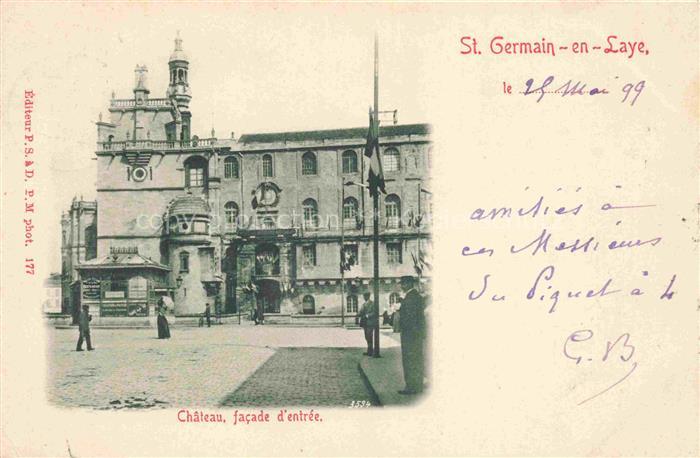 St. Germain-en-Laye,
le 25 Mai 99
amitiés à
ces Messieurs
du Piquet à 4
G. B.
Éditeur P. S. à D. P. M phot. 177
3534
Château, façade d'entrée.